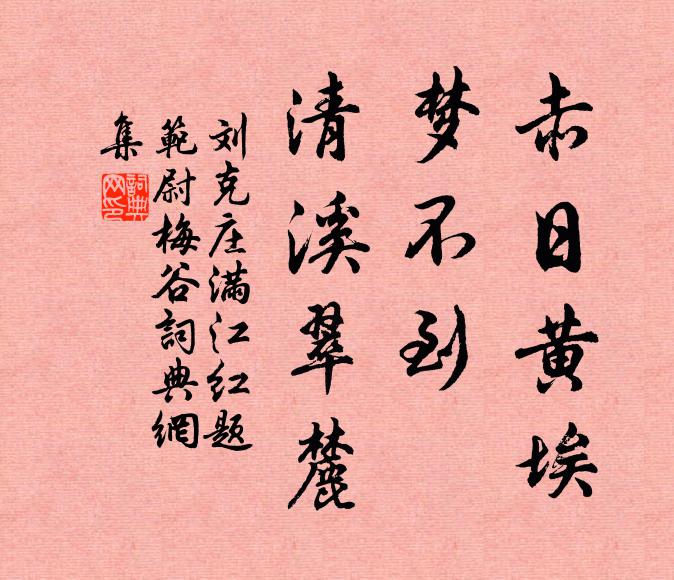 赤日黄埃
梦不到
清溪翠麓
刘克庄满江红题
範尉梅谷詞典網
集
詞典网印